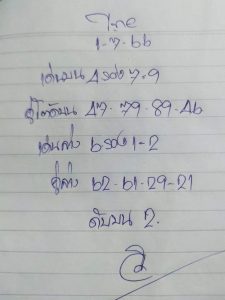 ไทย
1-7-66
เด่นบน 4 รอง 7-9
คู่โต๊ดบน 47-79-89-46
เด่นล่าง 6 รอง 1-2
คู่ล่าง 62-61-29-21
ดับบน 2.